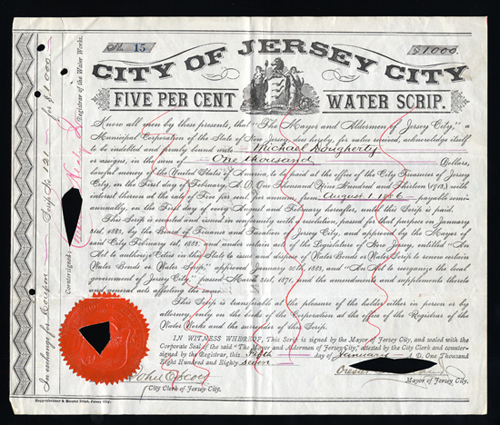 No. 15
$1,000.
CITY OF JERSEY CITY
FIVE PER CENT WATER SCRIP.
Know all men by these presents, that "The Mayor and Aldermen of Jersey City," a
Municipal Corporation of the State of New Jersey, does hereby, for value received, acknowledge itself
to be indebted and firmly bound unto Michael Dougherty
or assigns, in the sum of One thousand Dollars,
lawful money of the United States of America, to be paid at the office of the City Treasurer of Jersey
City, on the First day of February, A. D. One Thousand Nine Hundred and Thirteen (1913,) with
interest thereon at the rate of Five per cent per annum from August 1, 1886, payable semi-
annually, on the First day of every August and February hereafter, until this Scrip is paid.
This Scrip is created and issued in conformity with a resolution passed for that purpose on January
1883, by the Board of Finance and Taxation of Jersey City, and approved by the Mayor of
said City February 1st, 1883, and under certain acts of the Legislature of New Jersey, entitled "An
Act to authorize Cities in this State to issue and dispose of Water Bonds or Water Scrip to renew certain
Water Bonds or Water Scrip," approved January 30th, 1883, and "An Act to reorganize the local
government of Jersey City," passed March 31st, 1871, and the amendments and supplements thereto
and general acts affecting the same.
This Scrip is transferable at the pleasure of the holder either in person or by
attorney only on the books of the Corporation at the office of the Registrar of the
Water Works and the surrender of this Scrip.
IN WITNESS WHEREOF, This Scrip is signed by the Mayor of Jersey City, and sealed with the
Corporate Seal of the said "The Mayor and Aldermen of Jersey City," attested by the City Clerk and counter-
signed by the Registrar, this Fifth day of January A. D. One Thousand
Eight Hundred and Eighty seven
City Clerk of Jersey City.
Mayor of Jersey City.
Countersigned,
Registrar of the Water Works.
In exchange for Coupon Scrip No. 121 for $1,000.